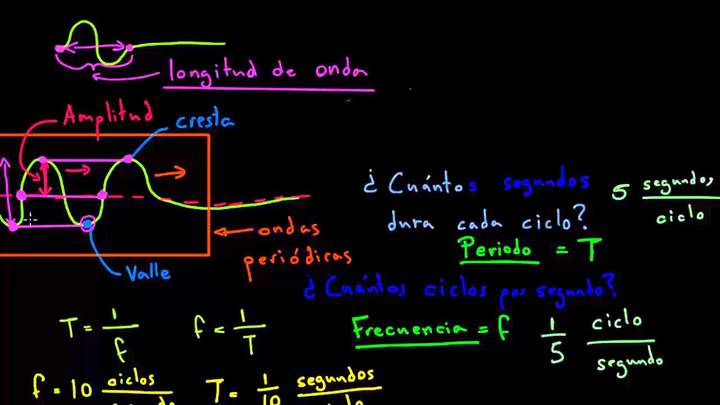 longitud de onda
Amplitud
cresta
¿Cuántos segundos
dura cada ciclo?
5 segundos/ciclo
Periodo = T
ondas
periódicas
Valle
¿Cuántos ciclos por segundo?
T = 1/f
f = 1/T
Frecuencia = f
1/5 ciclo/segundo
f = 10 ciclos/
T = 1/10 segundos/